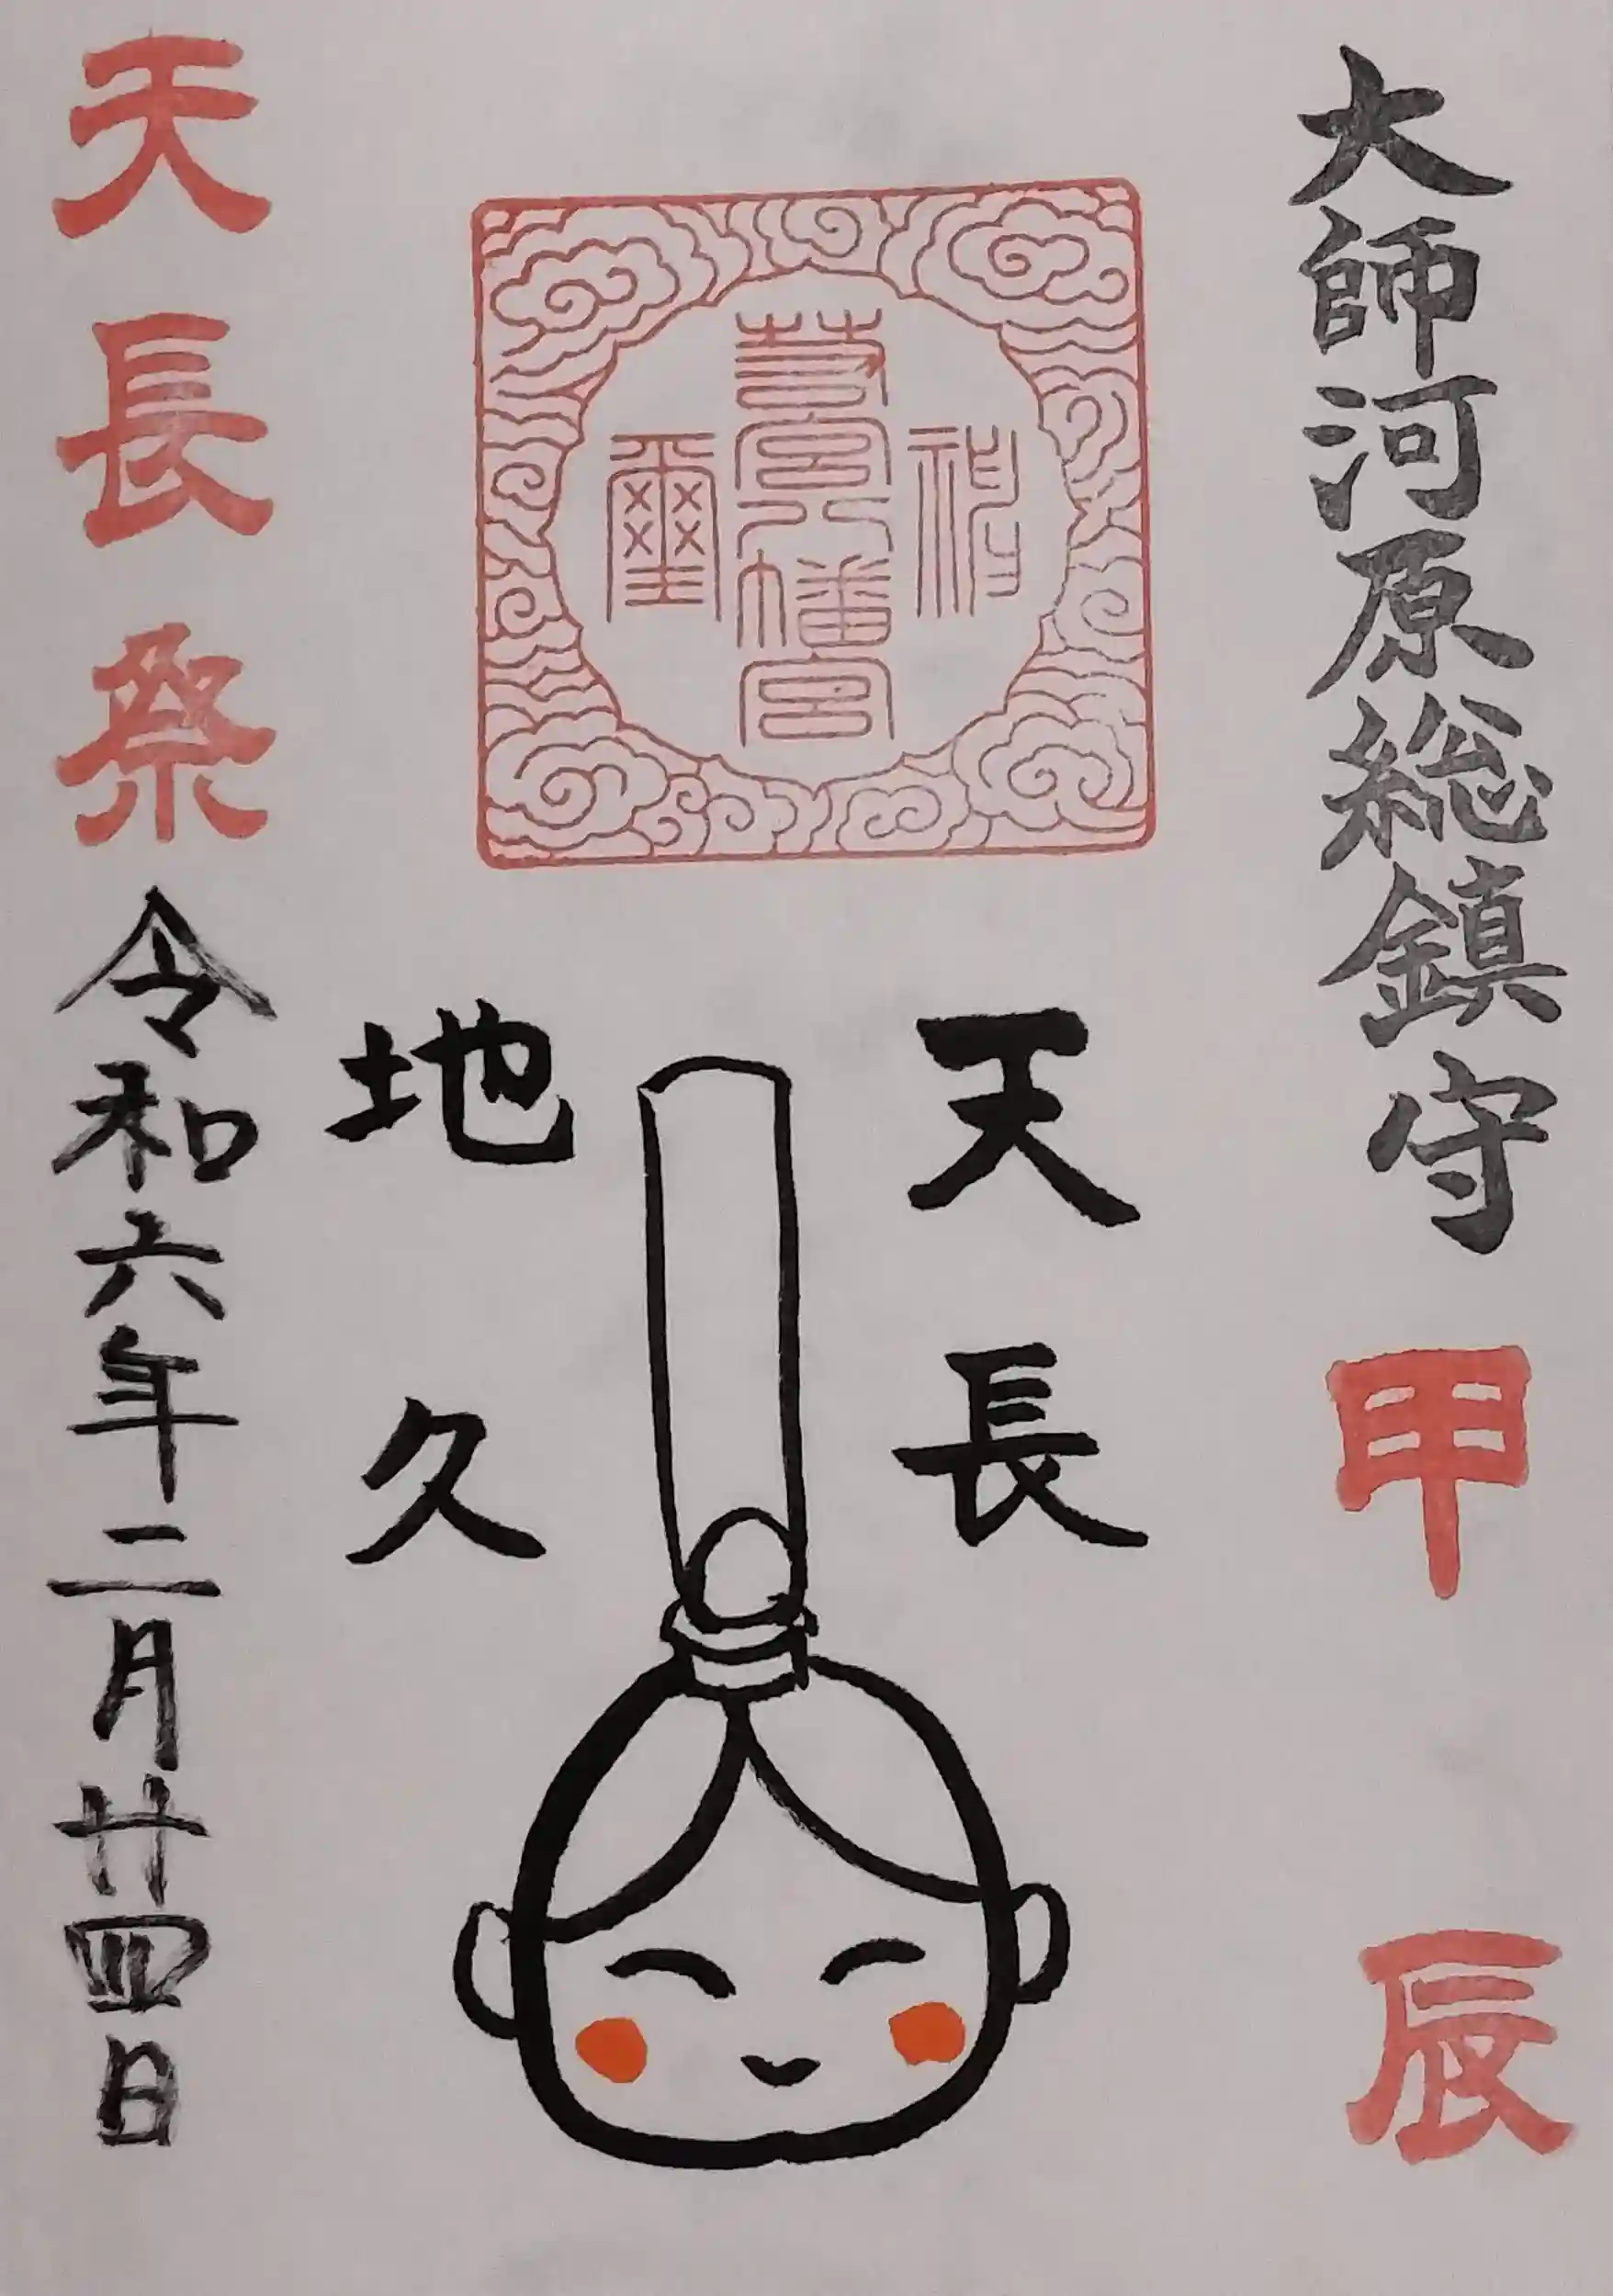 大師河原総鎮守
甲辰
若宮八幡宮
璽
天長
地久
天長祭
令和六年二月廿四日